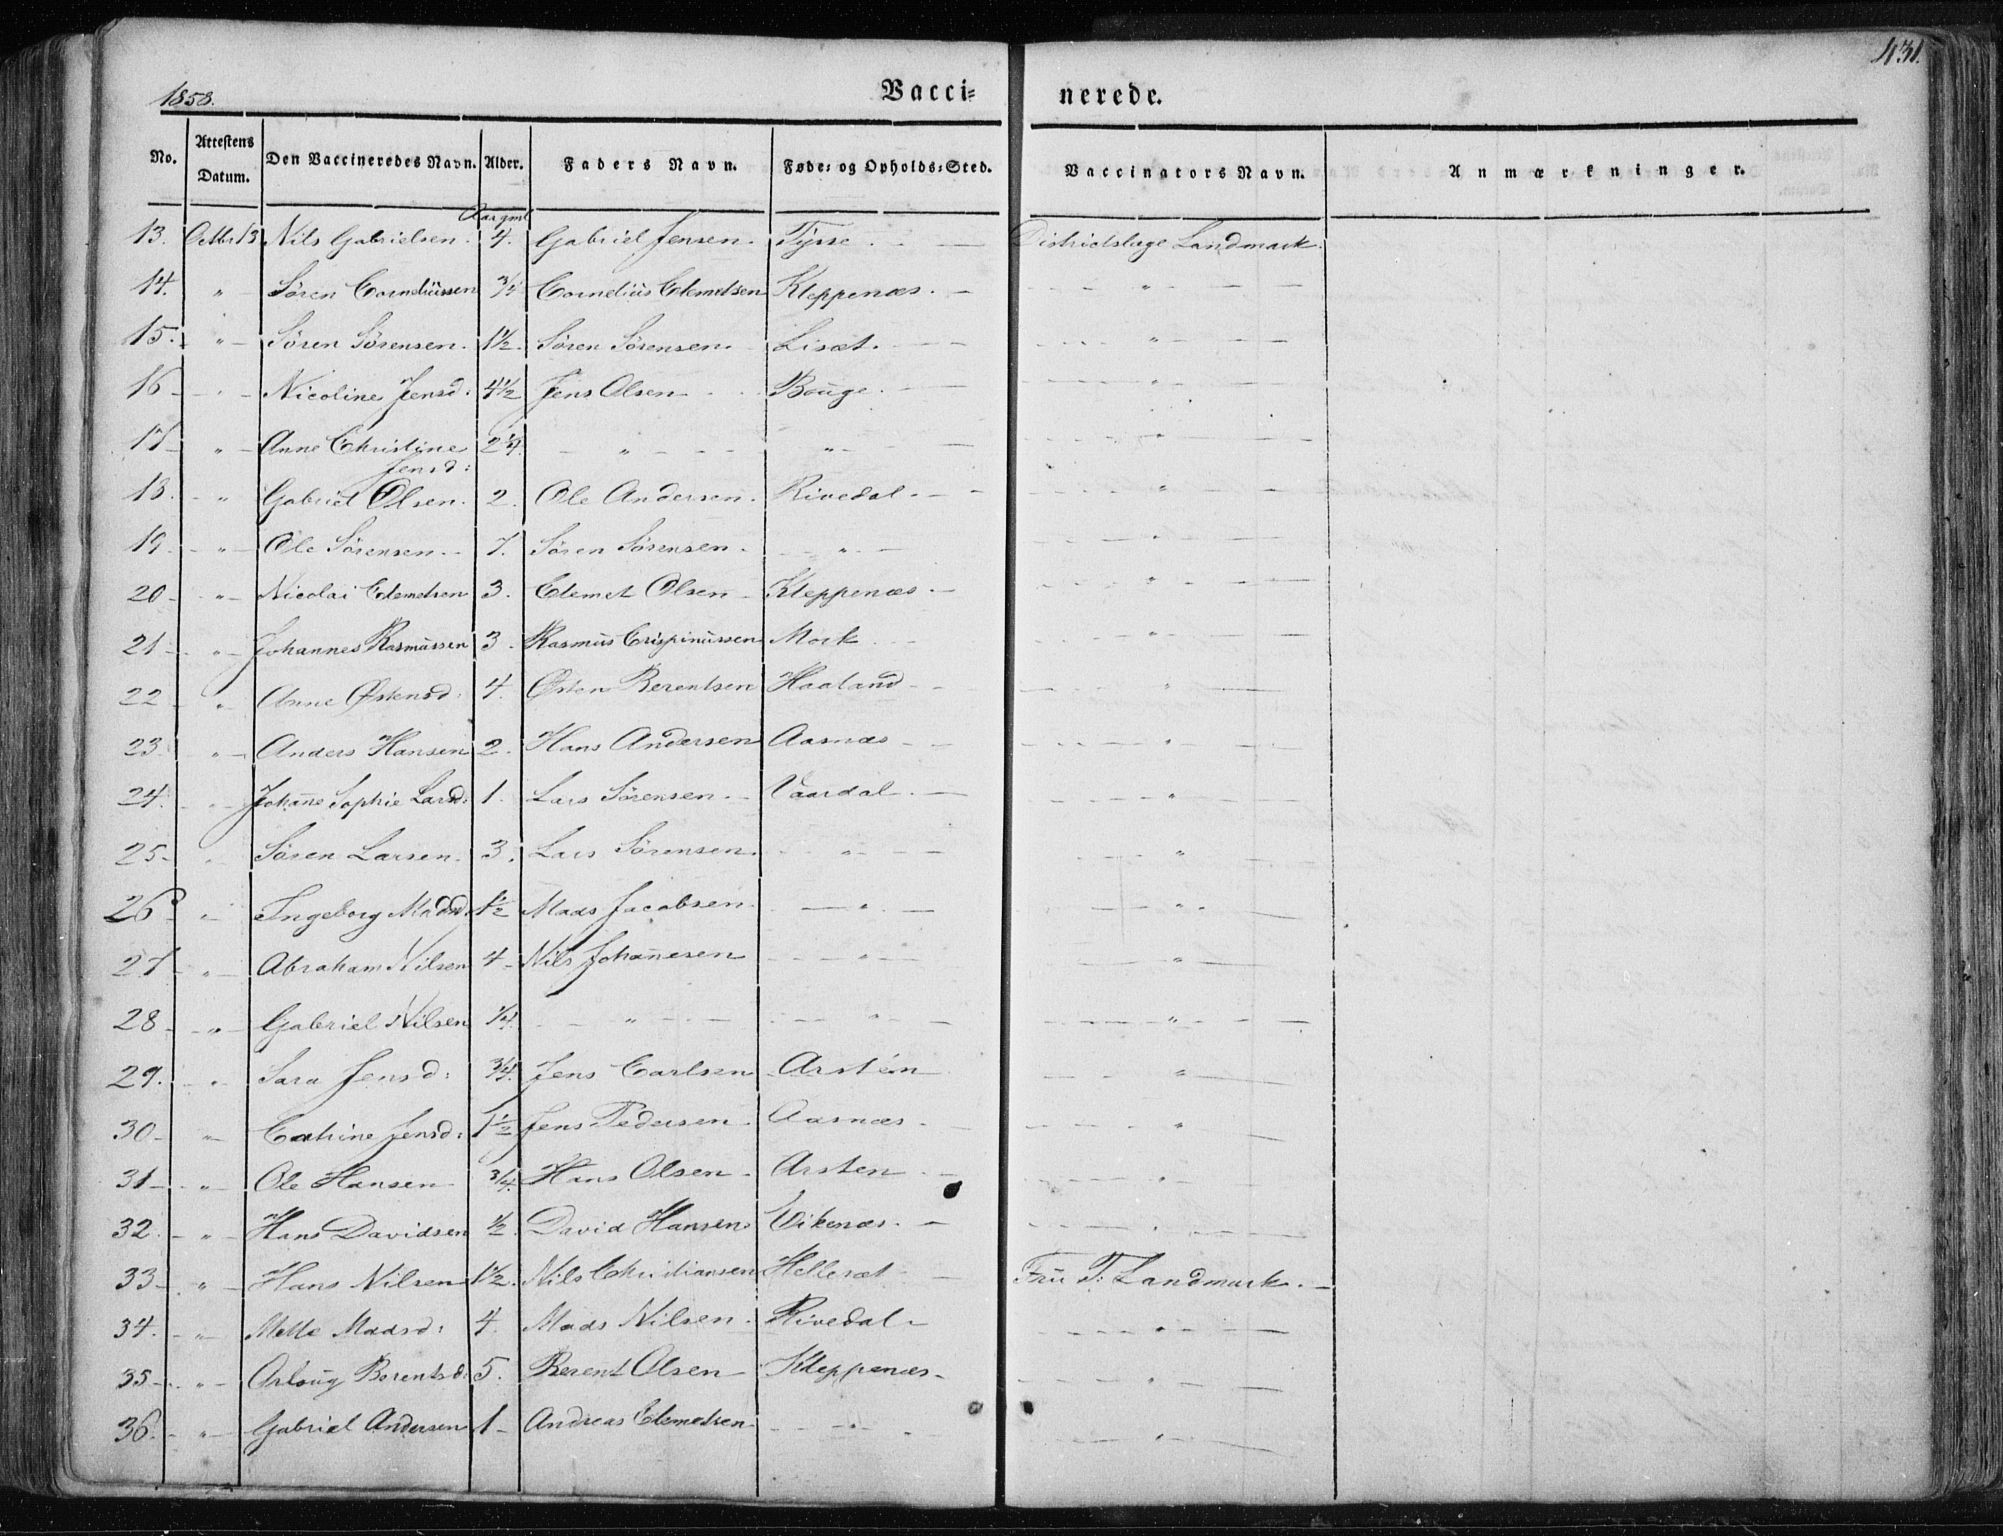 431.
1858.
Vacci- nerede.
No. Attestens Datum. Den Vaccineredes Navn. Alder. Faders Navn. Føde- og Opholds-Sted. Vaccinators Navn. Anmærkninger.
Aar gml
13. Octbr 13 Nils Gabrielsen. 4. Gabriel Jensen. Tysse. Districtslæge Landmark.
14. " Søren Corneliussen 3/4 Cornelius Clemetsen Kleppenæs. "
15. " Søren Sørensen. 1 1/2. Søren Sørensen. Lisæt. "
16 " Nicoline Jensd: 4 1/2 Jens Olsen Bouge. "
17 " Anne Christine Jensd: 2 1/4. " " "
18. " Gabriel Olsen. 2. Ole Andersen. Rivedal. "
19. " Ole Sørensen. 7. Søren Sørensen. " "
20 " Nicolai Clemetsen 3. Clemet Olsen Kleppenæs. "
21 " Johannes Rasmussen 3. Rasmus Crispinussen Mork "
22 " Anne Østensd: 4. Østen Berentsen Haaland "
23. " Anders Hansen 2. Hans Andersen Aasnæs "
24. " Johan̄e Sophie Larsd: 1. Lars Sørensen. Vaardal. "
25 " Søren Larsen. 3. Lars Sørensen. " "
26 " Ingeborg Madsd 1 1/2 Mads Jacobsen. " "
27 " Abraham Nilsen 4 Nils Johan̄esen " "
28 " Gabriel Nilsen 1/4. " " "
29. " Sara Jensd: 3/4. Jens Carlsen Arsten "
30 " Cathrine Jensd: 1 1/2 Jens Pedersen. Aasnæs. "
31 " Ole Hansen 3/4. Hans Olsen. Arsten "
32. " Hans Davidsen 1/2. David Hansen Eikenæs. "
33 " Hans Nilsen 1 1/2. Nils Christiansen Hellesæt Fru T: Landmark.
34. " Mette Madsd: 4. Mads Nilsen. Rivedal "
35 " Berentsd: 5. Berent Olsen Kleppenæs. "
36. " Gabriel Andersen 1 Andreas Clemetsen. " "